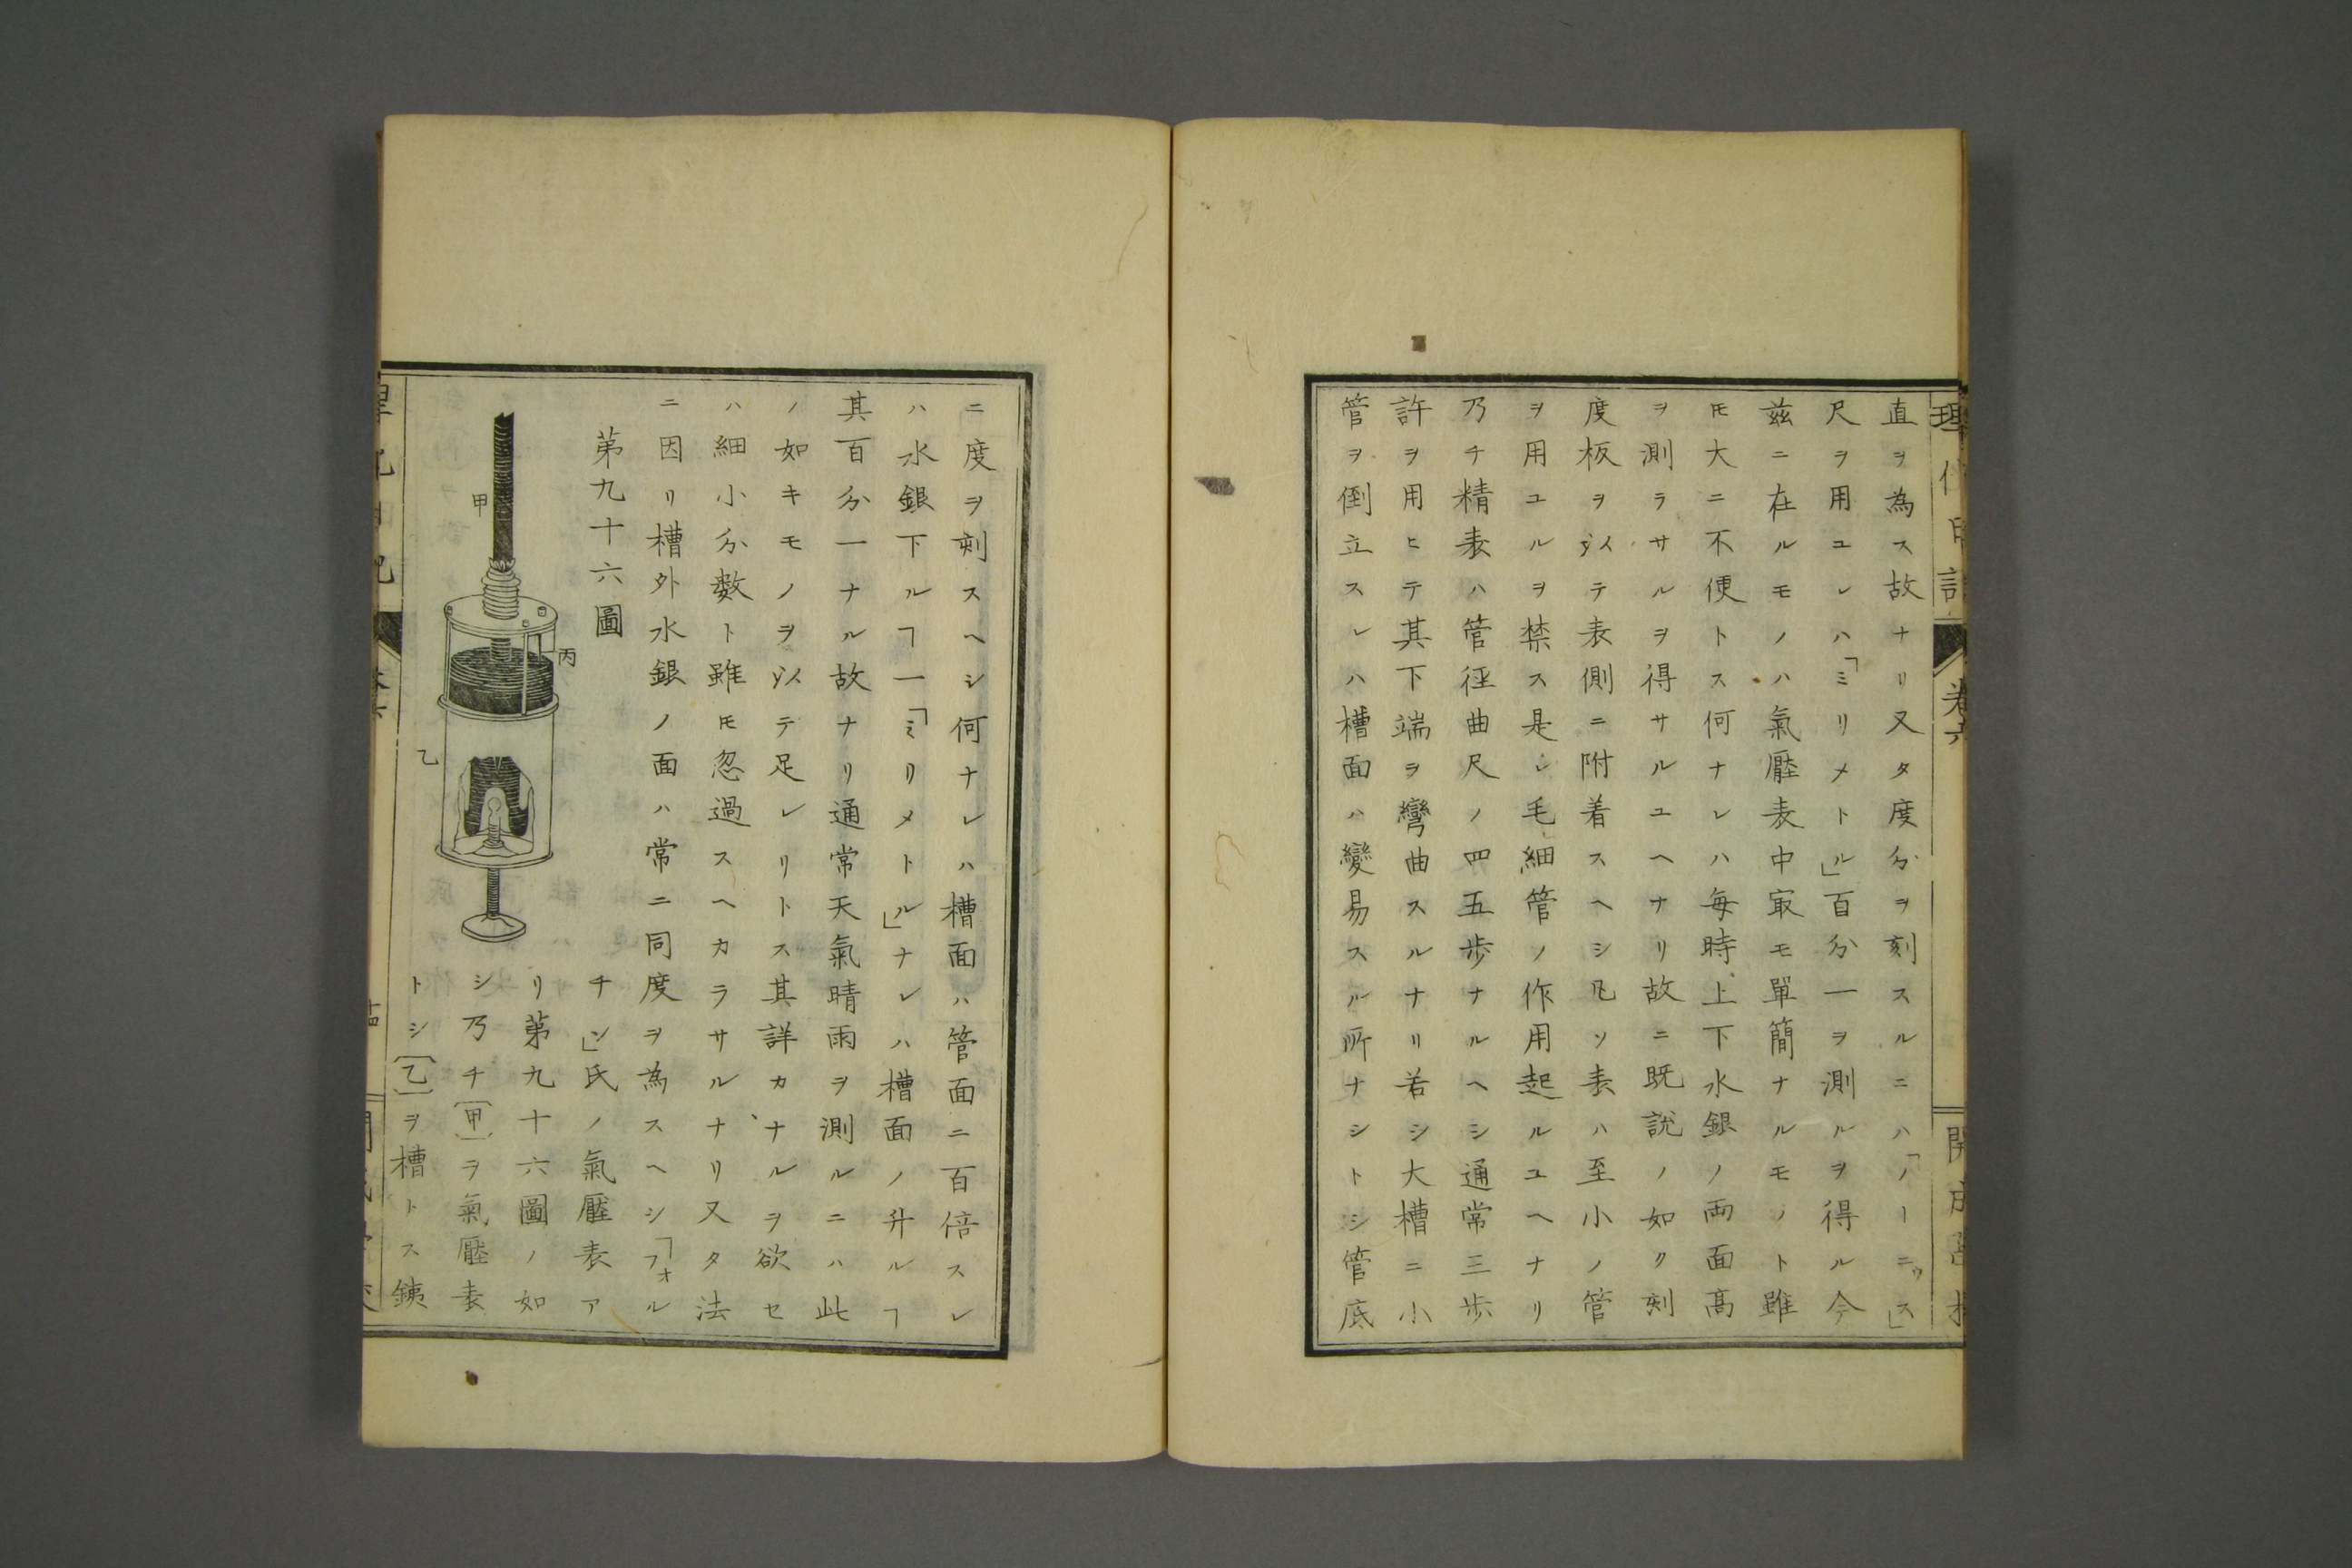 直ヲ為ス故ナリ又タ度分ヲ刻スルニハ「ノーニウス」
尺ヲ用ユレハ「ミリメトル」百分一ヲ測ルヲ得ル今
茲ニ在ルモノハ氣壓表中㝡モ單簡ナルモノト雖
𪜈大ニ不便トス何ナレハ毎時上下水銀ノ両面高
ヲ測ラサルヲ得サルユヘナリ故ニ既説ノ如ク刻
度板ヲ以テ表側ニ附着スヘシ凡ソ表ハ至小ノ管
ヲ用ユルヲ禁ス是レ毛細管ノ作用起ルユヘナリ
乃チ精表ハ管徑曲尺ノ四五歩ナルヘシ通常三歩
許ヲ用ヒテ其下端ヲ彎曲スルナリ若シ大槽ニ小
管ヲ倒立スレハ槽面ハ變易スル所ナシトシ管底
ニ度ヲ刻スヘシ何ナレハ槽面ハ管面ニ百倍スレ
ハ水銀下ルヿ一「ミリメトル」ナレハ槽面ノ升ルヿ
其百分一ナル故ナリ通常天氣晴雨ヲ測ルニハ此
ノ如キモノヲ以テ足レリトス其詳カナルヲ欲セ
ハ細小分數ト雖𪜈忽過スヘカラサルナリ又タ法
ニ因リ槽外水銀ノ面ハ常ニ同度ヲ為スヘシ「フォル
チン」氏ノ氣壓表ア
リ第九十六圖ノ如
シ乃チ〔甲〕ヲ氣壓表
トシ〔乙〕ヲ槽トス銕
第九十六圖
甲
丙
乙
卷六